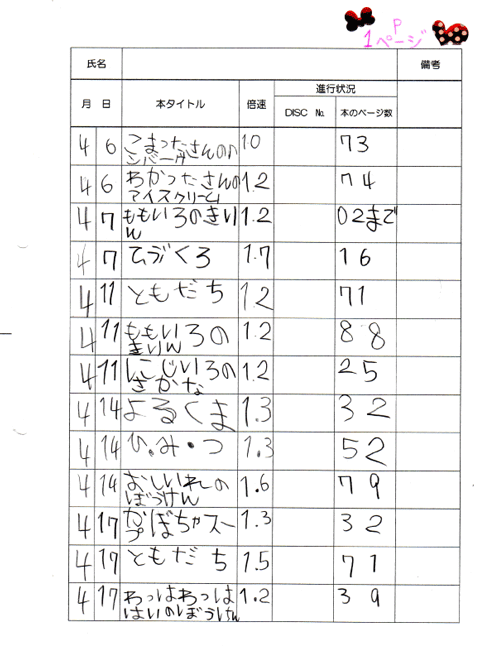 P
1ページ
氏名 備考
進行状況
月 日 本タイトル 倍速 DISC No. 本のページ数
4 6 こまったさんのハンバーグ 1.0 73
4 6 わかったさんのアイスクリーム 1.2 74
4 7 ももいろのきりん 1.2 02まで
4 7 くろ 1.7 16
4 11 ともだち 1.2 71
4 11 ももいろのきりん 1.2 88
4 11 にじいろのさかな 1.2 25
4 14 よるくま 1.3 32
4 14 ひ・み・つ 1.3 52
4 14 おしいれのぼうけん 1.6 79
4 17 かぼちゃスープ 1.3 32
4 17 ともだち 1.5 71
4 17 わっはわっははいのぼうけん 1.2 39